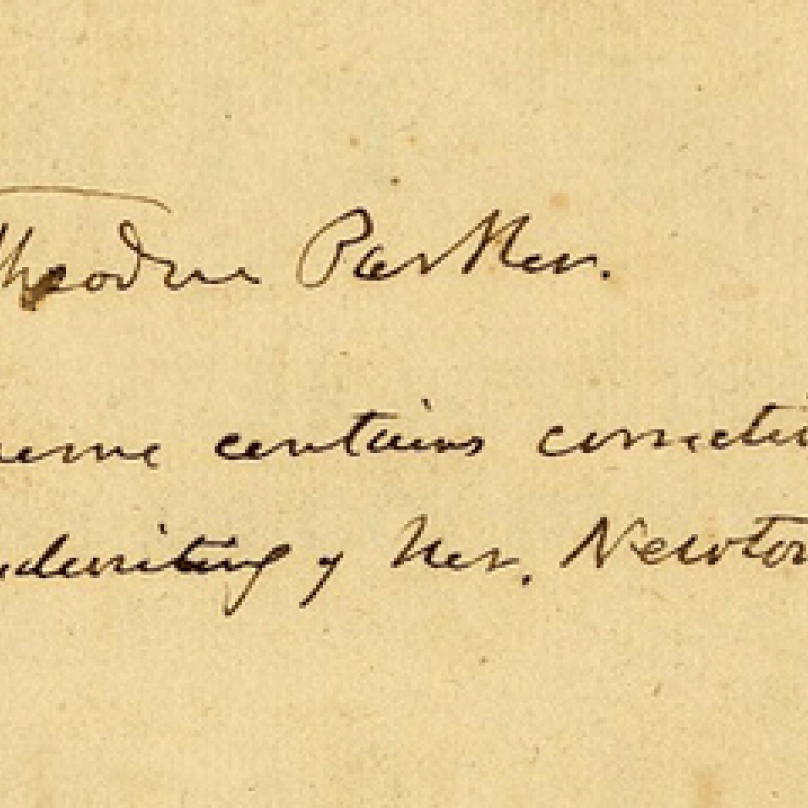 Theodore Parker.
contains correcti
ndwriting of Mr. Newton